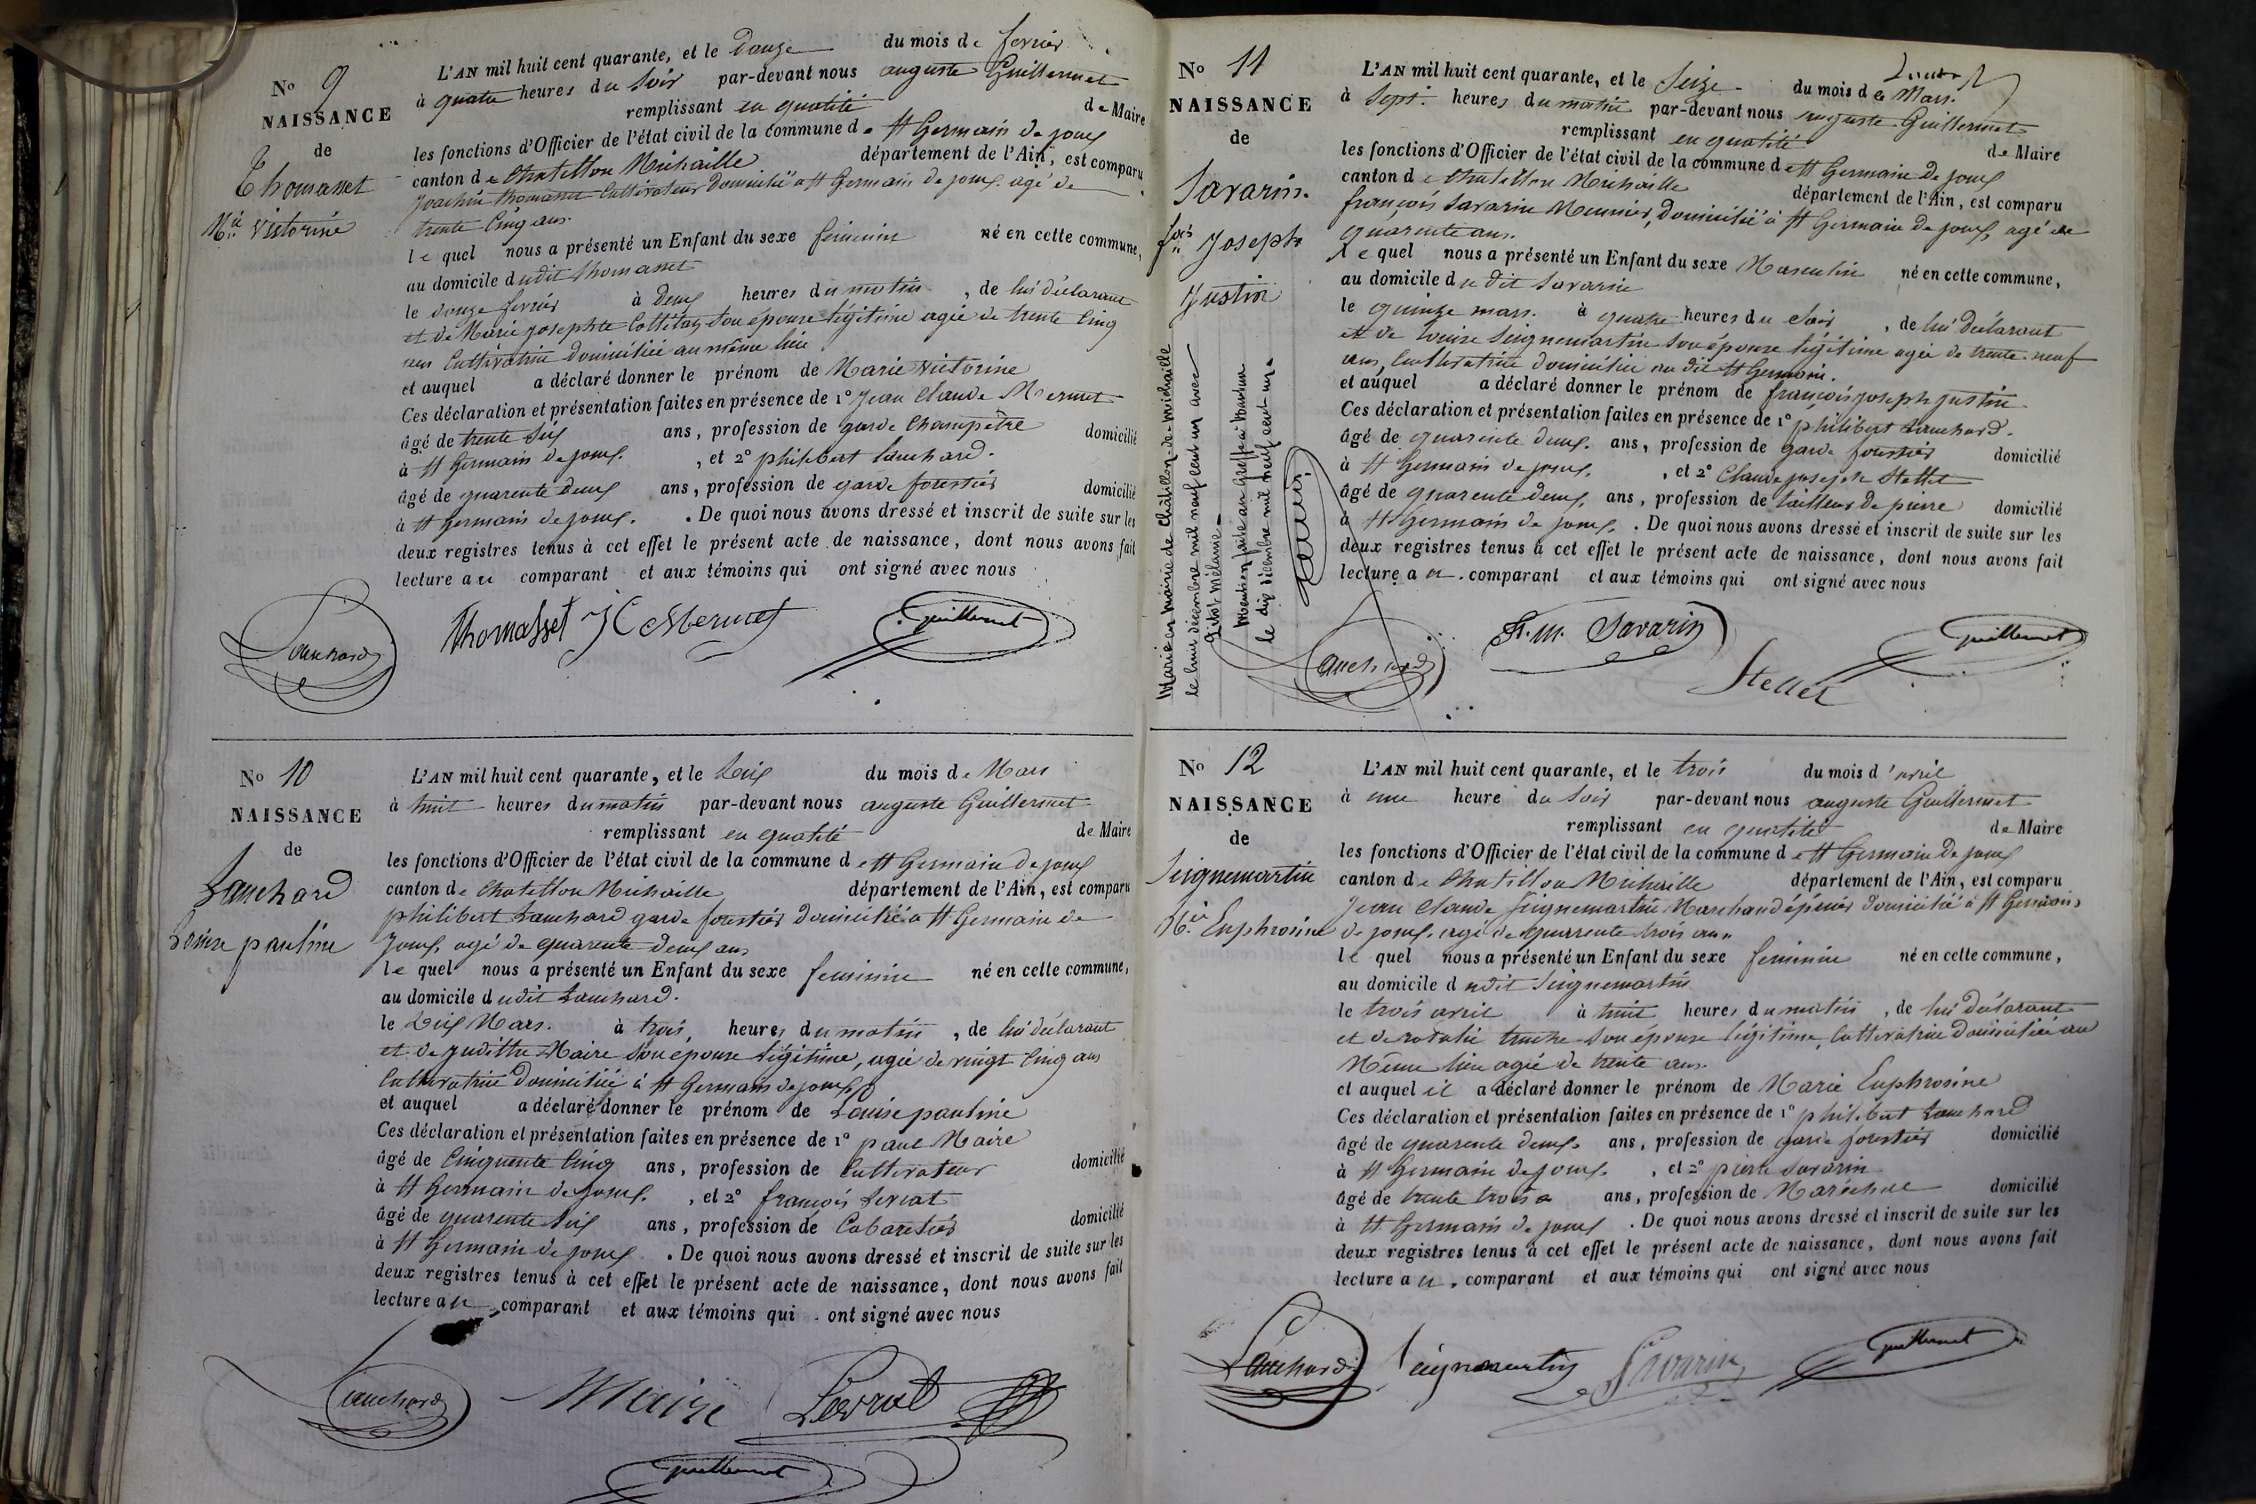 No 9
NAISSANCE
de
Thomasset
Mie Victorine
L'AN mil huit cent quarante, et le douze du mois de fevrier
à quatre heures du Soir par-devant nous auguste Guillermet
remplissant en qualité de Maire
les fonctions d'Officier de l'état civil de la commune de St Germain de joux
canton de Chatillon Michaille département de l'Ain, est comparu
joachim thomasset Cultivateur domicilié a St Germain de joux agé de
trente Cinq ans.
le quel nous a présenté un Enfant du sexe feminin né en cette commune,
au domicile dudit thomasset
le douze fevrier à deux heures du matin, de lui déclarant
et de Marie josephte Cottetaz son épouse légitime agée de trente Cinq
ans Cultivatrice domiciliée au même lieu
et auquel a déclaré donner le prénom de Marie Victorine
Ces déclaration et présentation faites en présence de 1o jean Claude Mermet
âgé de trente Six ans, profession de garde Champètre domicilié
à St Germain de joux. , et 2o philibert Lauchard.
âgé de quarente deux ans, profession de garde forestier domicilié
à St germain de joux. . De quoi nous avons dressé et inscrit de suite sur les
deux registres tenus à cet effet le présent acte de naissance, dont nous avons fait
lecture au comparant et aux témoins qui ont signé avec nous
Lauchard Thomasset JC Mermet Guillermet
No 10
NAISSANCE
de
Lauchard
Louise pauline
L'AN mil huit cent quarante, et le Dix du mois de Mars
à huit heures du matin par-devant nous auguste Guillermet
remplissant en qualité de Maire
les fonctions d'Officier de l'état civil de la commune de St Germain de joux
canton de Chatillon Michaille département de l'Ain, est comparu
philibert Lauchard garde forestier domicilié a St Germain de
joux, agé de quarente deux ans
le quel nous a présenté un Enfant du sexe feminin né en cette commune,
au domicile dudit Lauchard.
le Dix Mars. à trois heures du matin, de lui déclarant
et de judithe Maire son épouse légitime, agée de vingt Cinq ans
Cultivatrice domiciliée à St Germain de joux
et auquel a déclaré donner le prénom de Louise pauline
Ces déclaration et présentation faites en présence de 1o paul Maire
âgé de Cinquente Cinq ans, profession de Cultivateur domicilié
à St Germain de joux. , et 2o françois Levrat
âgé de quarente Six ans, profession de Cabaretier domicilié
à St Germain de joux. . De quoi nous avons dressé et inscrit de suite sur les
deux registres tenus à cet effet le présent acte de naissance, dont nous avons fait
lecture au comparant et aux témoins qui ont signé avec nous
Lauchard Maire Levrat
Guillermet
No 11
NAISSANCE
de
Savarin.
fois Joseph
Justin
Marié en Mairie de Châtillon-de-Michaille
le huit décembre mil neuf cent un avec
Mention faite au greffe à Nantua
le dix décembre mil neuf cent un.
L'AN mil huit cent quarante, et le Seize du mois de Mars.
à Sept heures du matin par-devant nous auguste Guillermet
remplissant en qualité de Maire
les fonctions d'Officier de l'état civil de la commune de St Germain de joux
canton de Chatillon Michaille département de l'Ain, est comparu
françois Savarin Meunier, domicilié à St Germain de joux, agé de
quarente ans.
le quel nous a présenté un Enfant du sexe Masculin né en cette commune,
au domicile du dit Savarin
le quinze mars. à quatre heures du Soir, de lui déclarant
et de Louise Seignemartin son épouse légitime agée de trente-neuf
ans, Cultivatrice domiciliée au dit St Germain.
et auquel a déclaré donner le prénom de françois joseph justin
Ces déclaration et présentation faites en présence de 1o philibert Lauchard.
âgé de quarente deux. ans, profession de garde forestier domicilié
à St Germain de joux. , et 2o Claude joseph Stellet
âgé de quarente deux. ans, profession de tailleur de pierre domicilié
à St Germain de joux. . De quoi nous avons dressé et inscrit de suite sur les
deux registres tenus à cet effet le présent acte de naissance, dont nous avons fait
lecture au comparant et aux témoins qui ont signé avec nous
Lauchard f. m. Savarin Stellet Guillermet
No 12
NAISSANCE
de
Seignemartin
Mie Euphrosine
L'AN mil huit cent quarante, et le trois du mois d'avril
à une heure du Soir par-devant nous auguste Guillermet
remplissant en qualité de Maire
les fonctions d'Officier de l'état civil de la commune de St Germain de joux
canton de Chatillon Michaille département de l'Ain, est comparu
jean Claude Seignemartin Marchand épicier domicilié à St Germain
de joux. agé de quarente trois ans
le quel nous a présenté un Enfant du sexe feminin né en cette commune,
au domicile dudit Seignemartin
le trois avril à huit heures du matin, de lui déclarant
et de rosalie son épouse légitime, Cultivatrice domiciliée au
Même lieu agée de trente ans.
et auquel il a déclaré donner le prénom de Marie Euphrosine
Ces déclaration et présentation faites en présence de 1o philibert Lauchard
âgé de quarente deux. ans, profession de garde forestier domicilié
à St Germain de joux. , et 2o pierre Savarin
âgé de trente trois ans, profession de Maréchal domicilié
à St Germain de joux . De quoi nous avons dressé et inscrit de suite sur les
deux registres tenus à cet effet le présent acte de naissance, dont nous avons fait
lecture au comparant et aux témoins qui ont signé avec nous
Lauchard Seignemartin Savarin Guillermet